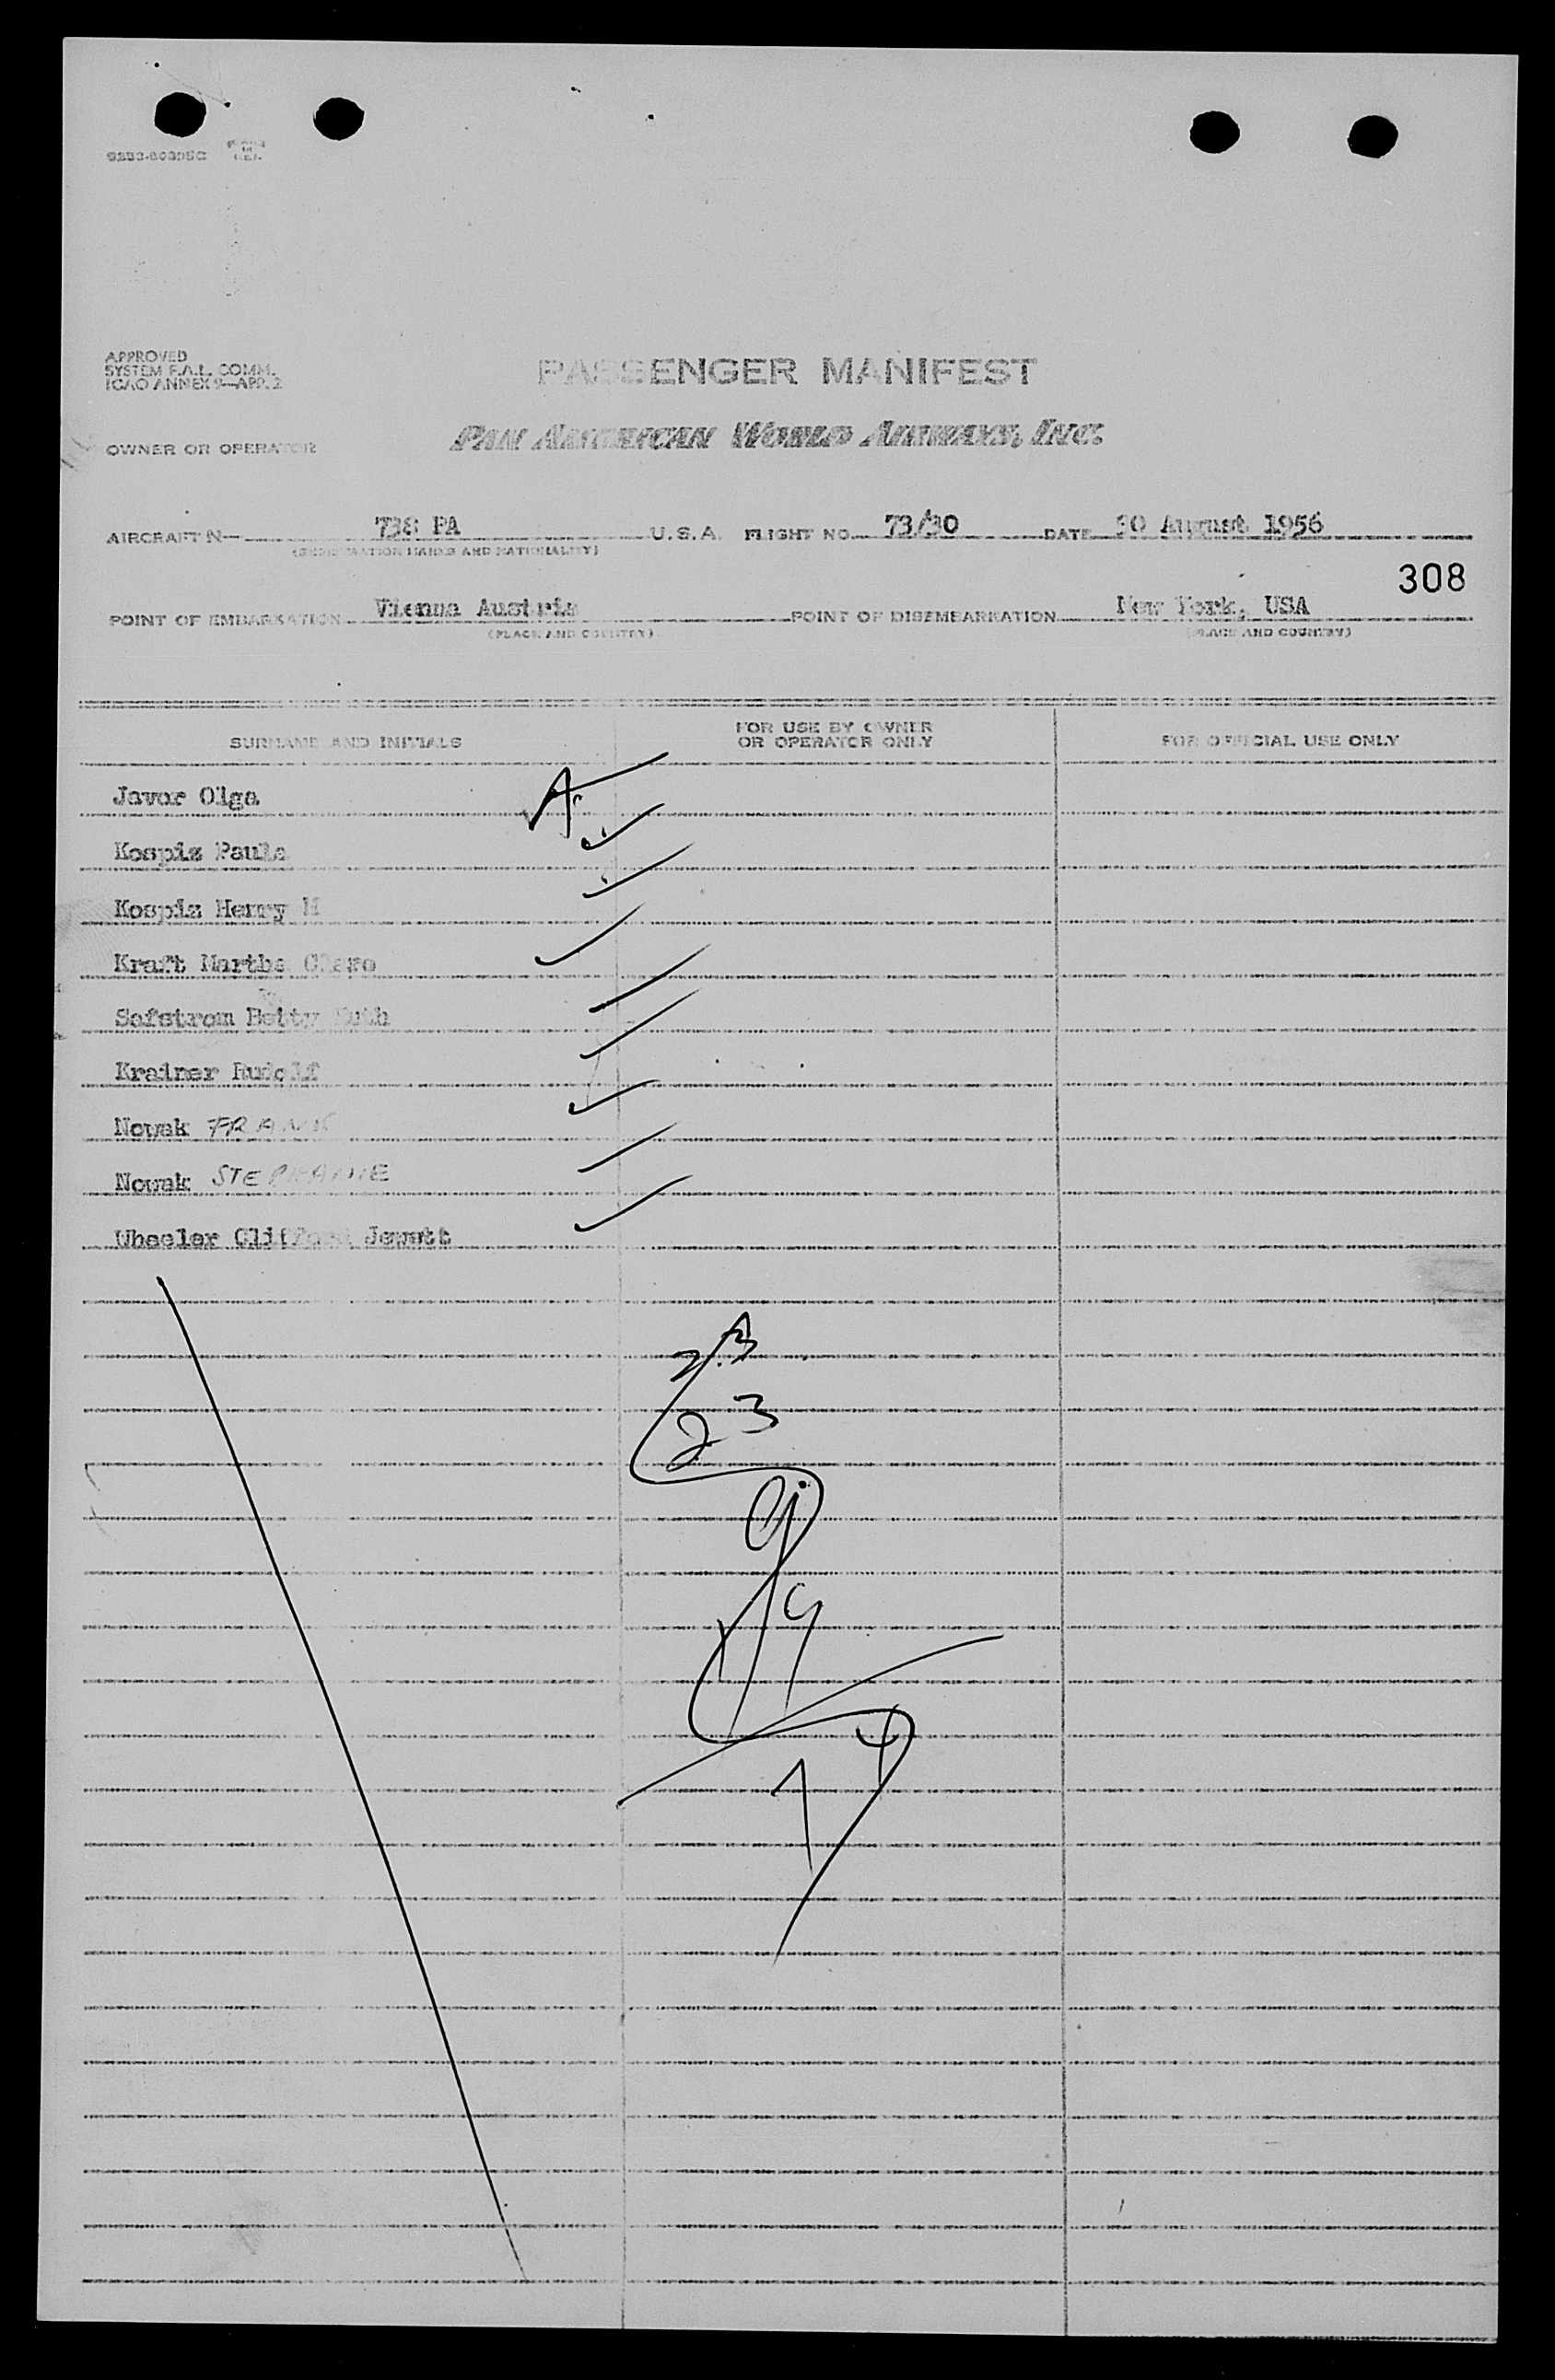 APPROVED
SYSTEM F.A.L. COMM.
ICAO ANNEX 9—APP. 2
PASSENGER MANIFEST
OWNER OR OPERATOR
PAN AMERICAN WORLD AIRWAYS, INC.
AIRCRAFT N— 738 PA U.S.A. FLIGHT NO. 73/30 DATE 30 August 1956
(REGISTRATION MARKS AND NATIONALITY)
308
POINT OF EMBARKATION Vienna Austria POINT OF DISEMBARKATION New York, USA
(PLACE AND COUNTRY) (PLACE AND COUNTRY)
SURNAME AND INITIALS
FOR USE BY OWNER
OR OPERATOR ONLY
FOR OFFICIAL USE ONLY
Javor Olga
Kospiz Paula
Kospiz Henry H
Kraft Martha Clara
Safstrom Betty Ruth
Krainer Rudolf
Nowak FRANK
Nowak STEPHANIE
Wheeler Clifford Jewett
23
23